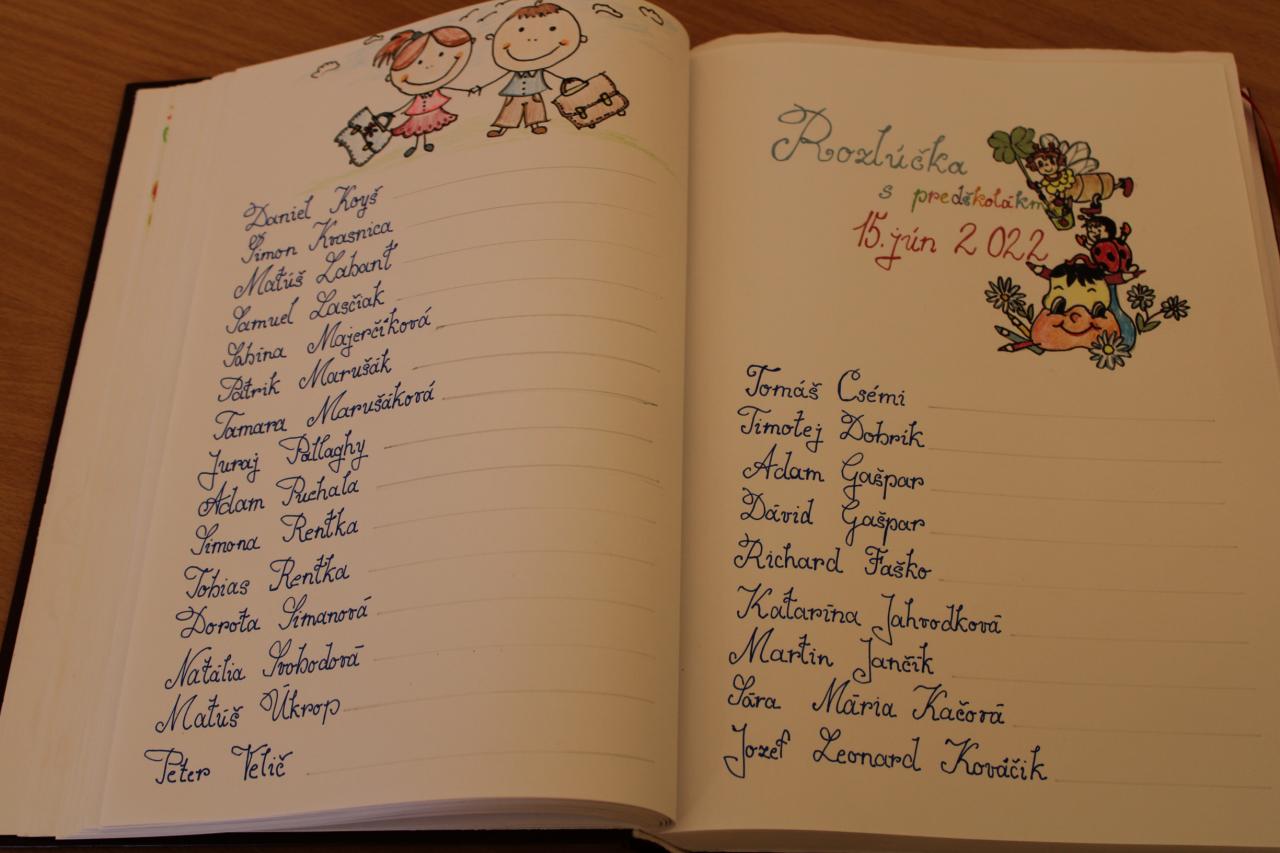 Daniel Koyš
Šimon Krasnica
Matúš Labant
Samuel Lasčiak
Sabina Majerčíková
Patrik Marušák
Tamara Marušáková
Juraj Pallaghy
Adam Puchala
Simona Rentka
Tobias Rentka
Dorota Šimanová
Natália Svobodová
Matúš Úkrop
Peter Velič
Rozlúčka
s predškolákm
15. jún 2022
Tomáš Csémi
Timotej Dobrík
Adam Gašpar
Dávid Gašpar
Richard Faško
Katarína Jahvodková
Martin Jančík
Sára Mária Kačová
Jozef Leonard Kováčik